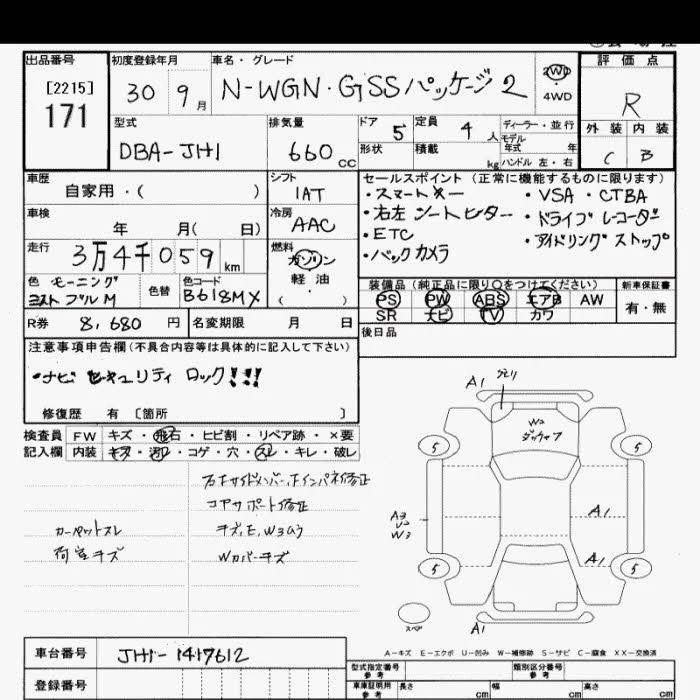 出品番号
[2215]
171
初度登録年月
30 9月
車名・グレード
N-WGN・G SSパッケージ2
2WD
・4WD
評価点
R
外装 内装
C B
型式
DBA-JH1
排気量
660cc
ドア 5
定員 4人
形状
積載 kg
ディーラー・並行
モデル年式 年
ハンドル 左・右
車歴
自家用・( )
シフト
IAT
車検
年 月( 日)
冷房
AAC
走行
3万4千059km
燃料
ガソリン
軽油
・( )
色 モーニング
ミストブルM
色替
色コード
B618MX
セールスポイント(正常に機能するものに限ります)
・スマートキー
・右左シートヒーター
・ETC
・バックカメラ
・VSA・CTBA
・ドライブレコーダー
・アイドリングストップ
装備品(純正品に限り○をつけてください)
PS PW ABS エアB AW
SR ナビ TV カワ
新車保証書
有・無
R券 8,680円
名変期限 月 日
後日品
注意事項申告欄(不具合内容等は具体的に記入して下さい)
・ナビセキュリティロック!!!
修復歴 有〔箇所 〕
検査員
記入欄
FW キズ・飛石・ヒビ割・リペア跡・×要
内装 キズ・汚レ・コゲ・穴・スレ・キレ・破レ
コアサポート修正
カーペットスレ
荷室キズ
Wカバーキズ
A1
W2
5
5
A3
W3
A1
A1
5
5
スペア
A1
A-キズ E-エクボ U-凹み W-補修跡 S-サビ C-腐食 XX-交換済
車台番号
JH1-1417612
登録番号
型式指定番号
参考
類別区分番号
参考
車庫証明用
参考
長さ cm
幅 cm
高さ cm